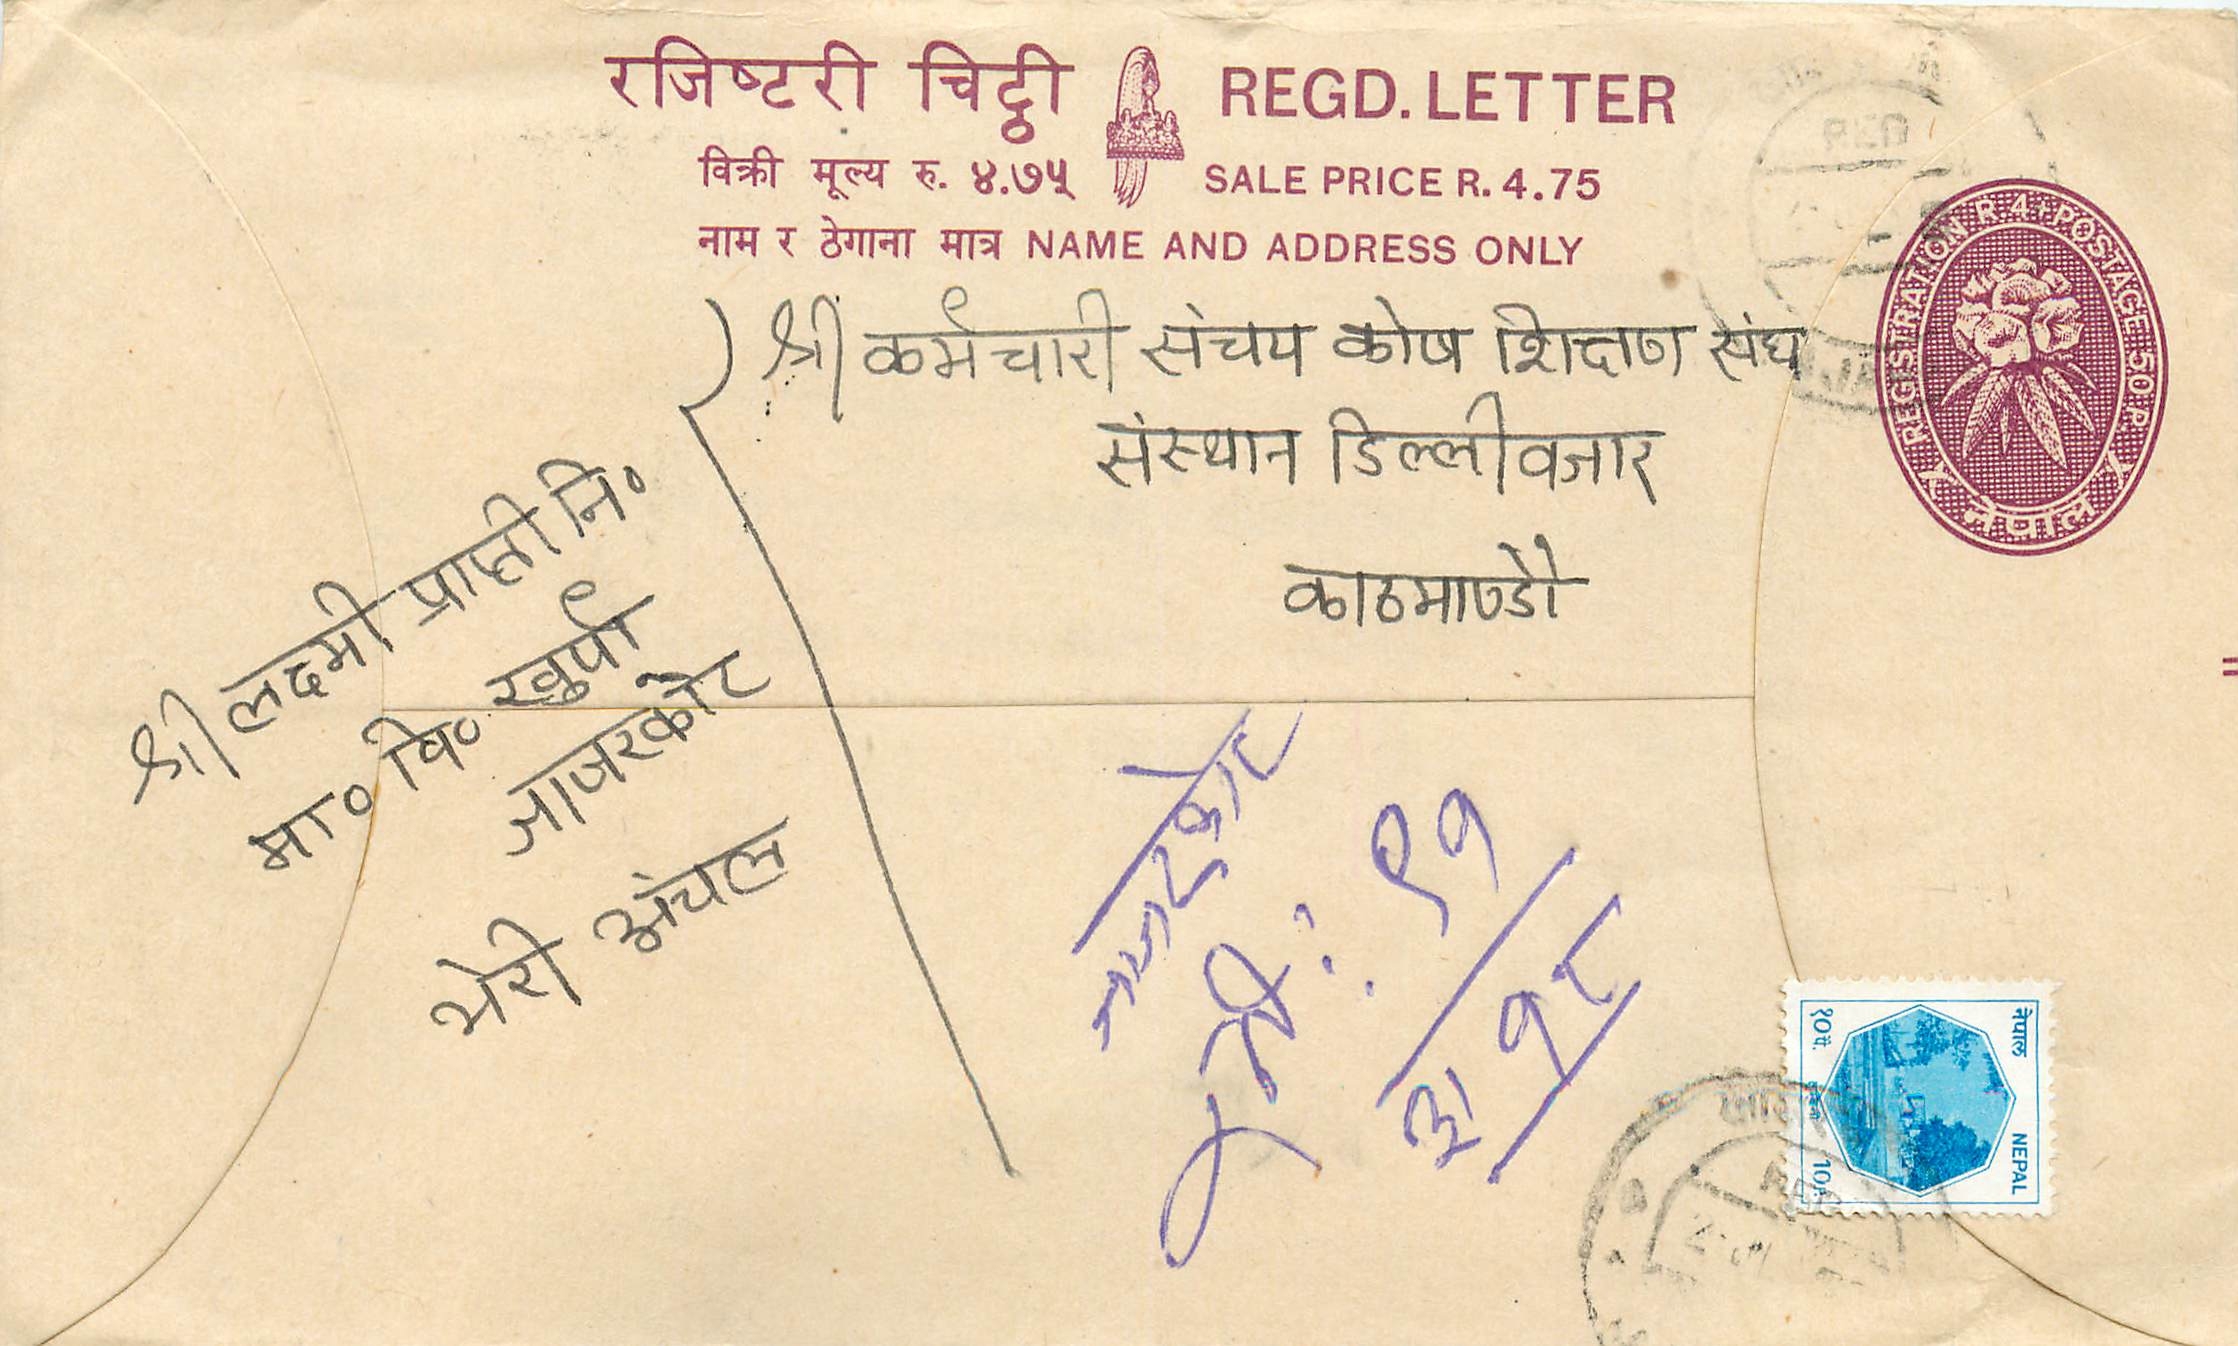 रजिष्टरी चिट्ठी REGD. LETTER
विक्री मूल्य रु. ४.७५ SALE PRICE R. 4.75
नाम र ठेगाना मात्र NAME AND ADDRESS ONLY
REGISTRATION R 4 + POSTAGE 50 P
नेपाल
श्री कर्मचारी संचय कोष शिक्षण संघ
संस्थान डिल्लीवजार
काठमाण्डौ
श्री लक्ष्मी प्राप्ती नि॰
मा॰ वि॰ खुर्पा
जाजरकोट
भेरी अंचल
जाजरकोट
९१
नेपाल NEPAL
१०पै. 10P.